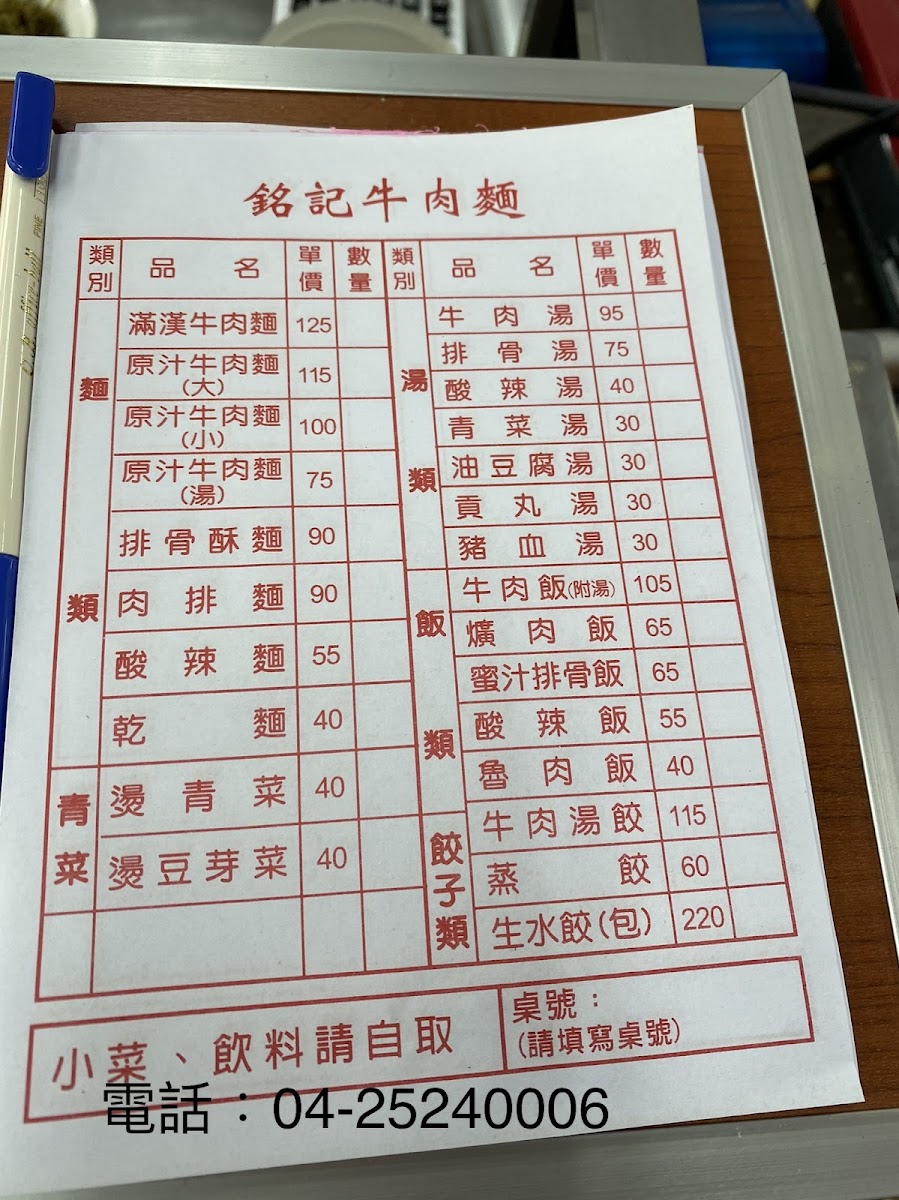 銘記牛肉麵
類別 品名 單價 數量
麵類
滿漢牛肉麵 125
原汁牛肉麵(大) 115
原汁牛肉麵(小) 100
原汁牛肉麵(湯) 75
排骨酥麵 90
肉排麵 90
酸辣麵 55
乾麵 40
青菜
燙青菜 40
燙豆芽菜 40
類別 品名 單價 數量
湯類
牛肉湯 95
排骨湯 75
酸辣湯 40
青菜湯 30
油豆腐湯 30
貢丸湯 30
豬血湯 30
飯類
牛肉飯(附湯) 105
爌肉飯 65
蜜汁排骨飯 65
酸辣飯 55
魯肉飯 40
餃子類
牛肉湯餃 115
蒸餃 60
生水餃(包) 220
小菜、飲料請自取
桌號：
(請填寫桌號)
電話：04-25240006